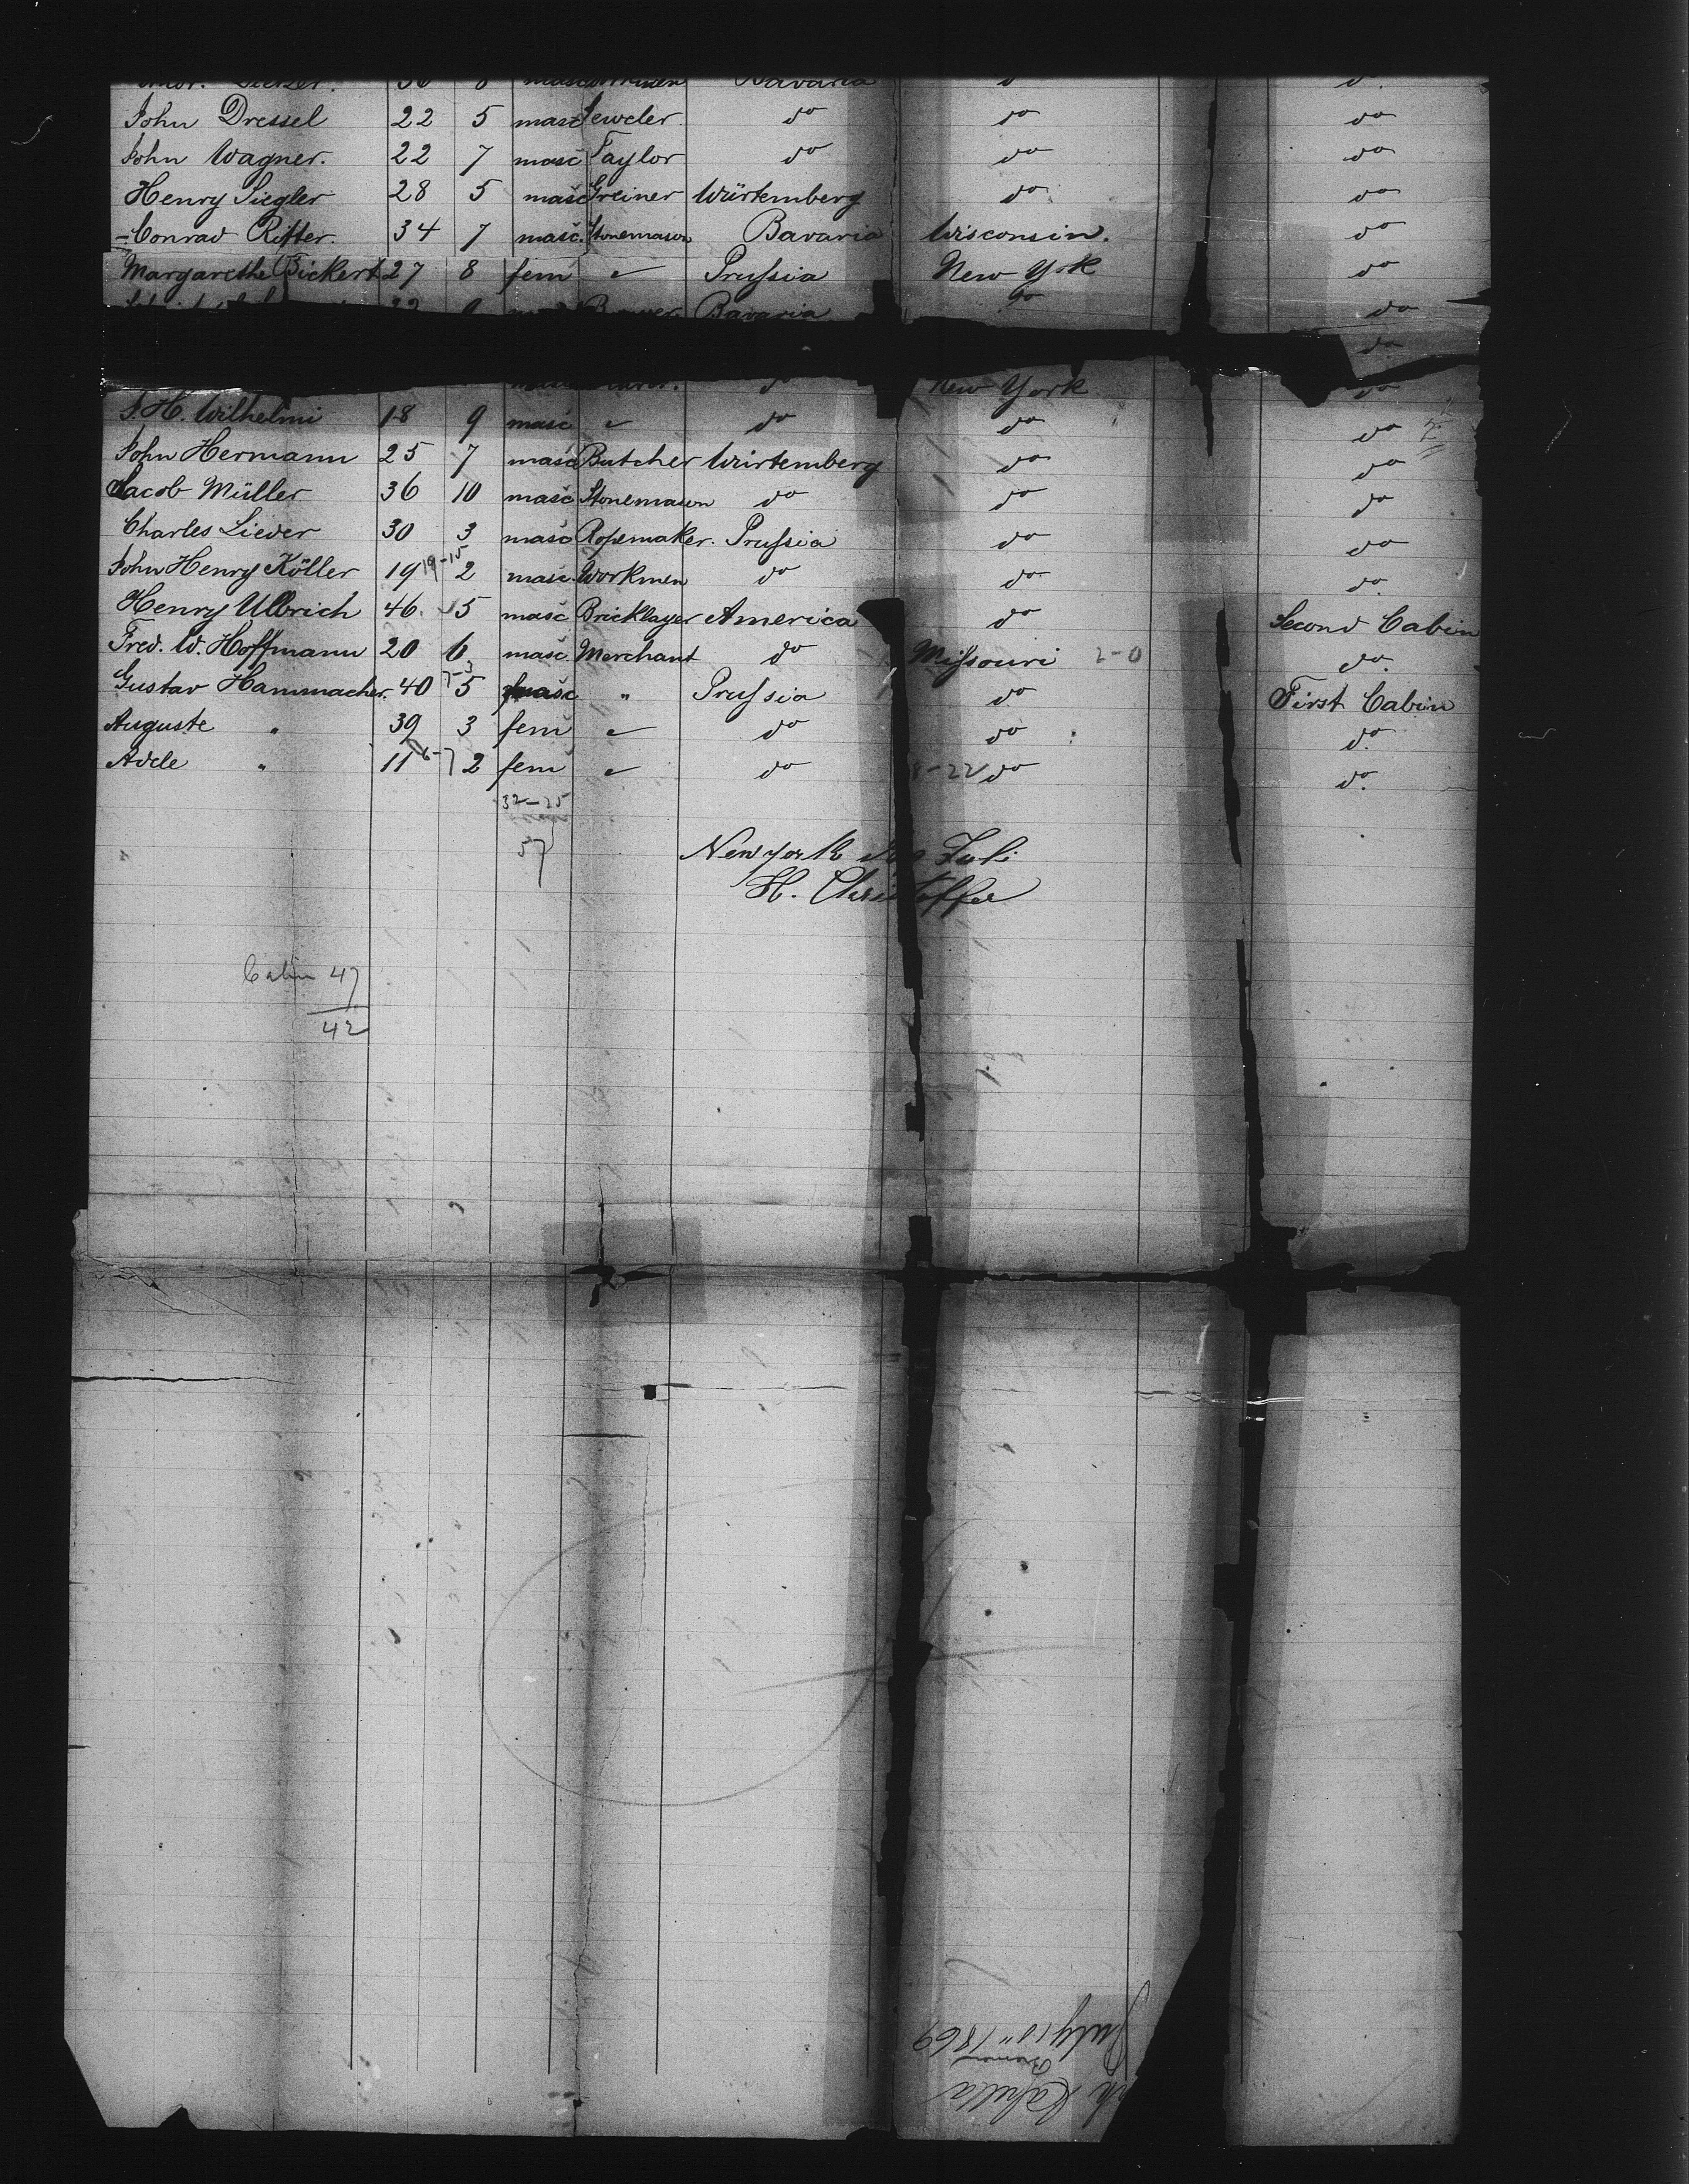 36 Bavaria
John Dressel 22 5 masc Jeweler do do do
John Wagner. 22 7 masc Taylor do do do
Henry Siegler 28 5 masc Greiner Würtemberg do do
Conrad Ritter. 34 7 masc. Stonemason Bavaria Wisconsin. do
Margarethe Bickert 27 8 fem " Prussia New York do
Bavaria do do
do
do New York do
J. H. Wilhelmi 18 9 masc " do do do
John Hermann 25 7 masc Butcher Würtemberg do do
Jacob Müller 36 10 masc Stonemason do do do
Charles Lieder 30 3 masc Ropemaker. Prussia do do
John Henry Köller 19 19-15 2 masc. Workmen do do do.
Henry Ullrich 46. 5 masc Bricklayer America do Second Cabin
Fred. W. Hoffmann 20 6 masc. Merchant do Missouri 2-0 do.
Gustav Hammacher. 40 5 masc " Prussia do First Cabin
Auguste " 39 3 fem " do do do.
Adele " 11 2 fem " do 8-22 do do.
32-25
57
New york Juli
H. Christoffer
Cabin 47
42
July 10" 1869
Bremen